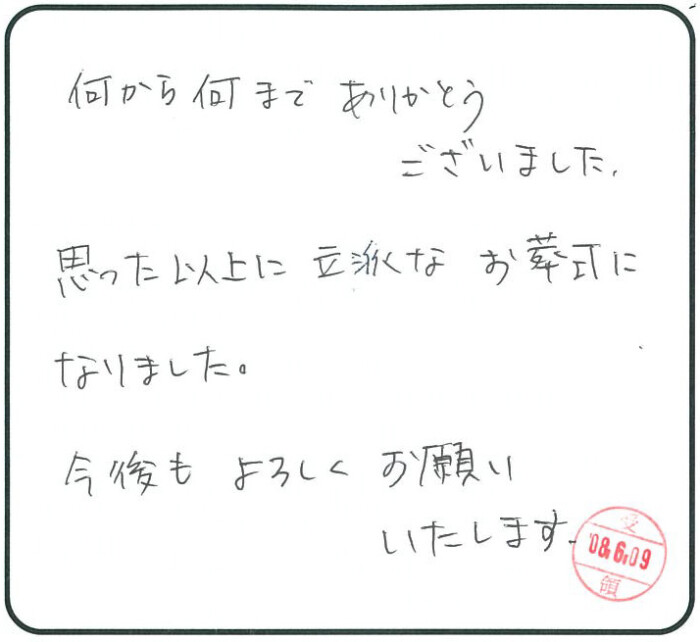 何から何まで ありがとう
ございました.
思った以上に 立派な お葬式に
なりました。
今後も よろしく お願い
いたします.
受
'08.6.09
領